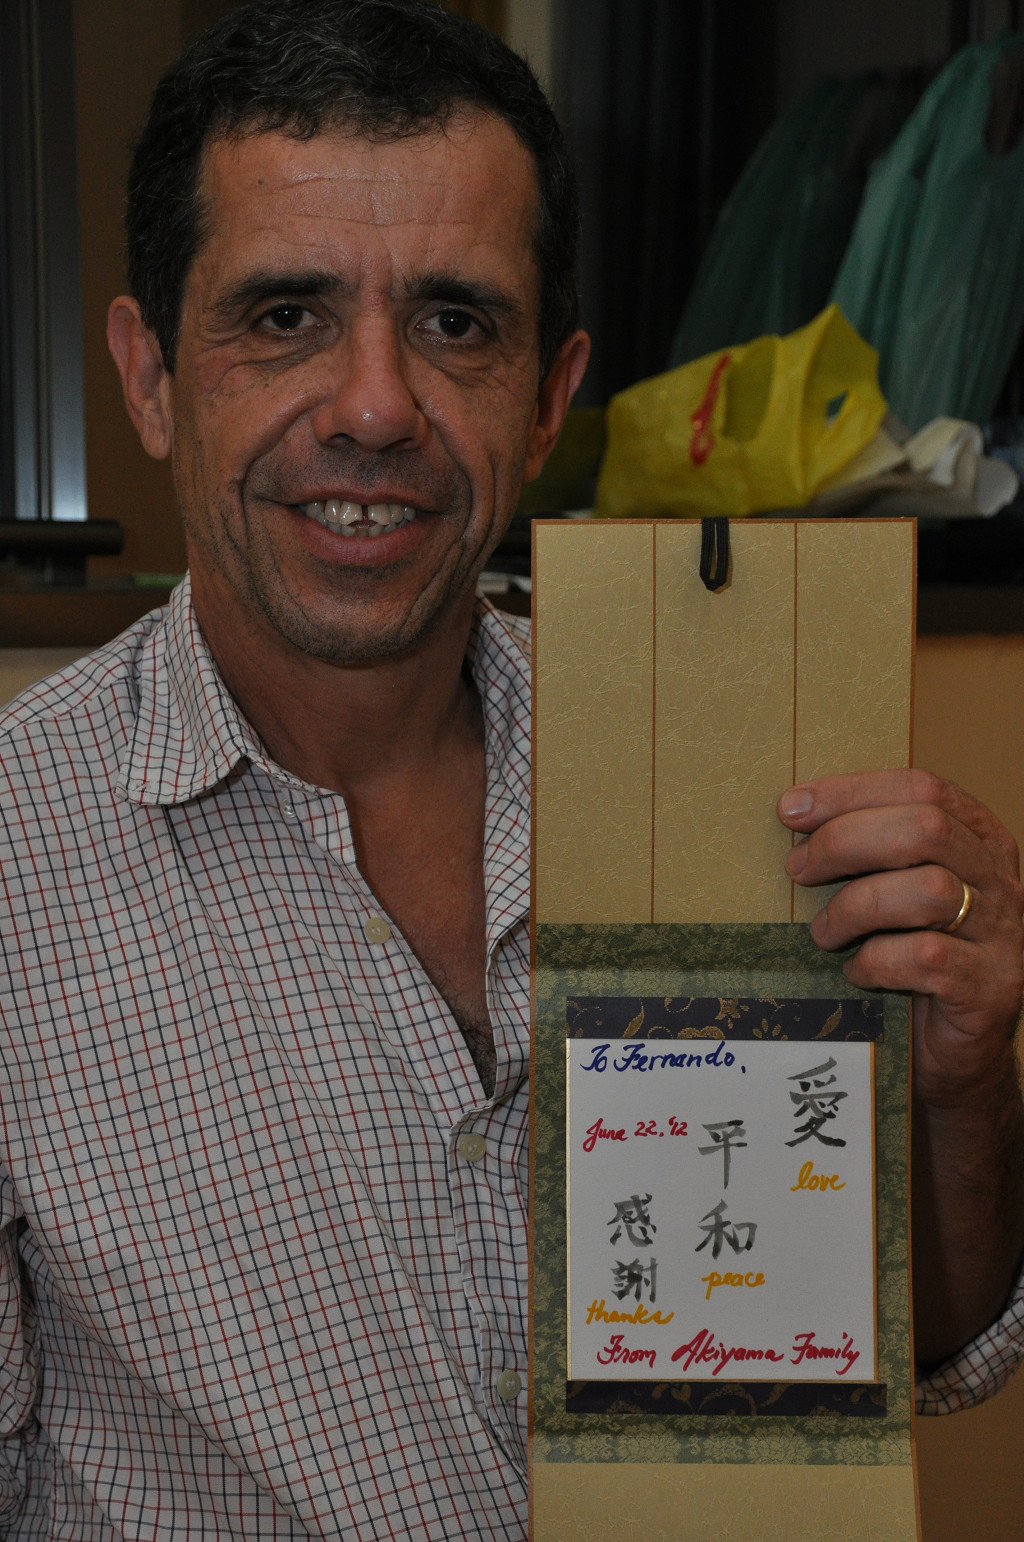 To Fernando,
June 22, '12
愛
love
平和
peace
感謝
thanks
From Akiyama Family